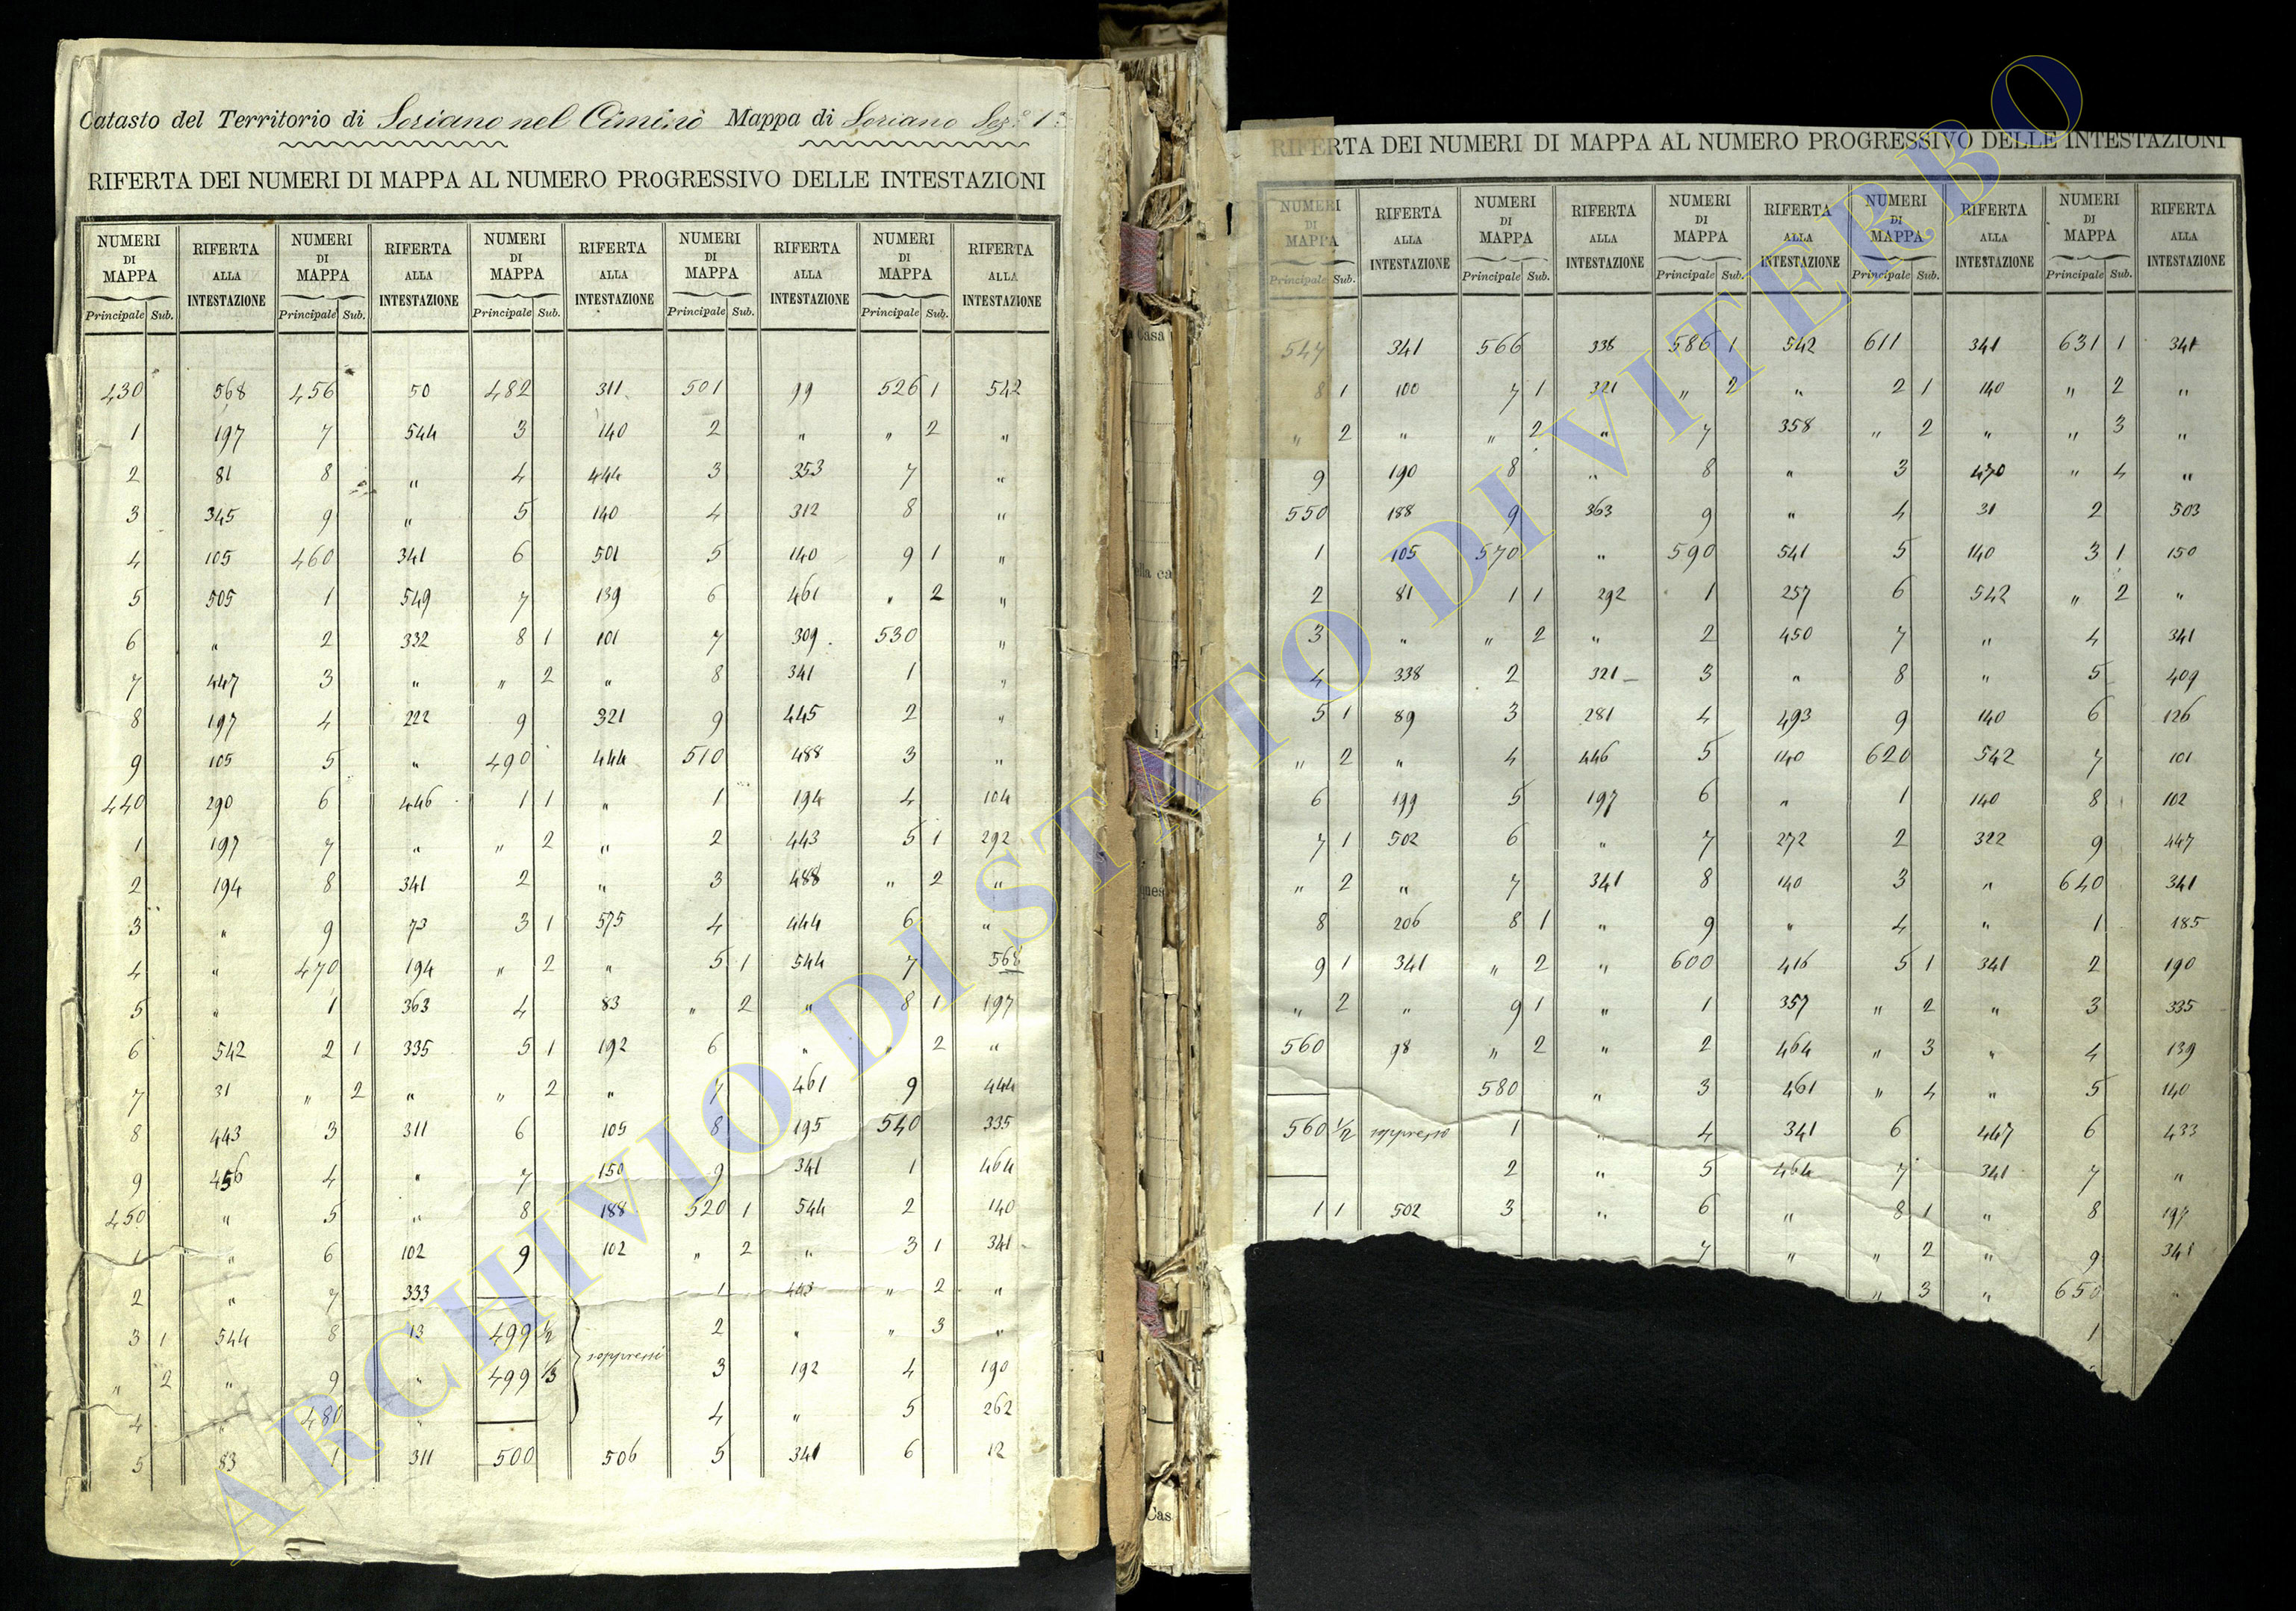 Catasto del Territorio di Soriano nel Cimino Mappa di Soriano Sez.e 1a
RIFERTA DEI NUMERI DI MAPPA AL NUMERO PROGRESSIVO DELLE INTESTAZIONI
NUMERI DI MAPPA RIFERTA ALLA INTESTAZIONE NUMERI DI MAPPA RIFERTA ALLA INTESTAZIONE NUMERI DI MAPPA RIFERTA ALLA INTESTAZIONE NUMERI DI MAPPA RIFERTA ALLA INTESTAZIONE NUMERI DI MAPPA RIFERTA ALLA INTESTAZIONE
Principale Sub. Principale Sub. Principale Sub. Principale Sub. Principale Sub.
430 568 456 50 482 311 501 99 526 1 542
1 197 7 544 3 140 2 „ „ 2 „
2 81 8 „ 4 444 3 353 7 „
3 345 9 „ 5 140 4 312 8 „
4 105 460 341 6 501 5 140 9 1 „
5 505 1 549 7 139 6 461 „ 2 „
6 „ 2 332 8 1 101 7 309 530 „
7 447 3 „ „ 2 „ 8 341 1 „
8 197 4 222 9 321 9 445 2 „
9 105 5 „ 490 444 510 488 3 „
440 290 6 446 1 1 „ 1 194 4 104
1 197 7 „ „ 2 „ 2 443 5 1 292
2 194 8 341 2 „ 3 488 „ 2 „
3 „ 9 73 3 1 575 4 444 6 „
4 „ 470 194 „ 2 „ 5 1 544 7 568
5 „ 1 363 4 83 „ 2 „ 8 1 197
6 542 2 1 335 5 1 192 6 „ „ 2 „
7 31 „ 2 „ „ 2 „ 7 461 9 444
8 443 3 311 6 105 8 195 540 335
9 456 4 „ 7 150 9 341 1 464
450 „ 5 „ 8 188 520 1 544 2 140
1 „ 6 102 9 102 „ 2 „ 3 1 341
2 „ 7 333 1 443 „ 2 „
3 1 544 8 13 499 1/2 2 „ „ 3 „
„ 2 „ 9 „ 499 1/3 soppressi 3 192 4 190
4 „ 480 „ 4 „ 5 262
5 83 1 311 500 506 5 341 6 12
RIFERTA DEI NUMERI DI MAPPA AL NUMERO PROGRESSIVO DELLE INTESTAZIONI
NUMERI DI MAPPA RIFERTA ALLA INTESTAZIONE NUMERI DI MAPPA RIFERTA ALLA INTESTAZIONE NUMERI DI MAPPA RIFERTA ALLA INTESTAZIONE NUMERI DI MAPPA RIFERTA ALLA INTESTAZIONE NUMERI DI MAPPA RIFERTA ALLA INTESTAZIONE
Principale Sub. Principale Sub. Principale Sub. Principale Sub. Principale Sub.
547 341 566 338 586 1 542 611 341 631 1 341
8 1 100 7 1 321 „ 2 „ 2 1 140 „ 2 „
„ 2 „ „ 2 „ 7 358 „ 2 „ „ 3 „
9 190 8 „ 8 „ 3 470 „ 4 „
550 188 9 363 9 „ 4 31 2 503
1 105 570 „ 590 541 5 140 3 1 150
2 81 1 1 292 1 257 6 542 „ 2 „
3 „ „ 2 „ 2 450 7 „ 4 341
4 338 2 321 3 „ 8 „ 5 409
5 1 89 3 281 4 493 9 140 6 126
„ 2 „ 4 446 5 140 620 542 7 101
6 199 5 197 6 „ 1 140 8 102
7 1 502 6 „ 7 272 2 322 9 447
„ 2 „ 7 341 8 140 3 „ 640 341
8 206 8 1 „ 9 „ 4 „ 1 185
9 1 341 „ 2 „ 600 416 5 1 341 2 190
„ 2 „ 9 1 „ 1 357 „ 2 „ 3 335
560 98 „ 2 „ 2 464 „ 3 „ 4 139
580 „ 3 461 „ 4 „ 5 140
560 1/2 soppresso 1 „ 4 341 6 447 6 433
2 „ 5 464 7 341 7 „
1 1 502 3 „ 6 „ 8 1 „ 8 197
7 „ „ 2 „ 9 341
„ 3 „ 650 „
1
ARCHIVIO DI STATO DI VITERBO